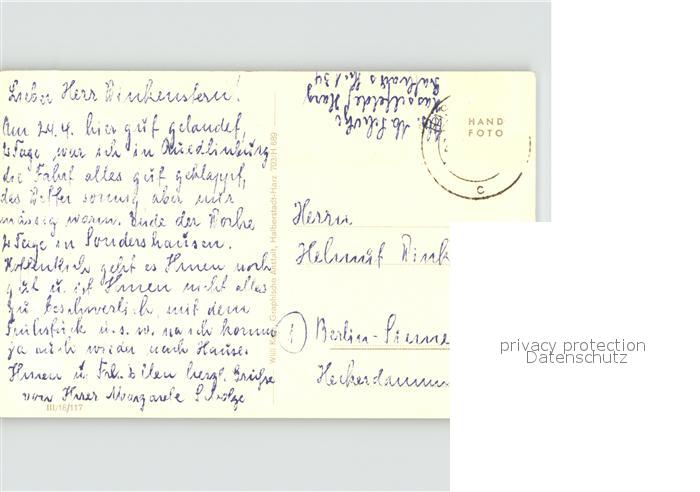 Lieber Herr Winkenstern!
Am 24.4. hier gut gelandet,
2 Tage war ich in Quedlinburg
die Fahrt alles gut geklappt,
das Wetter sonnig aber nur
mässig warm. Ende der Woche
2 Tage in Sondershausen.
Hoffentlich geht es Ihnen noch
gut u. ist Ihnen nicht alles
zu beschwerlich, mit dem
Frühstück u.s.w. na ich komme
ja auch wieder nach Hause.
Ihnen u. Frl. herzl. Grüße
von Ihrer Margarete Scholze
III/18/117
Willi Graphische Anstalt, Halberstadt-Harz 703/H 689
Hasselfelde/Harz
HAND
FOTO
c
Herrn
Helmut Wink
1 Berlin-Sieme
Heckerdamm
privacy protection
Datenschutz